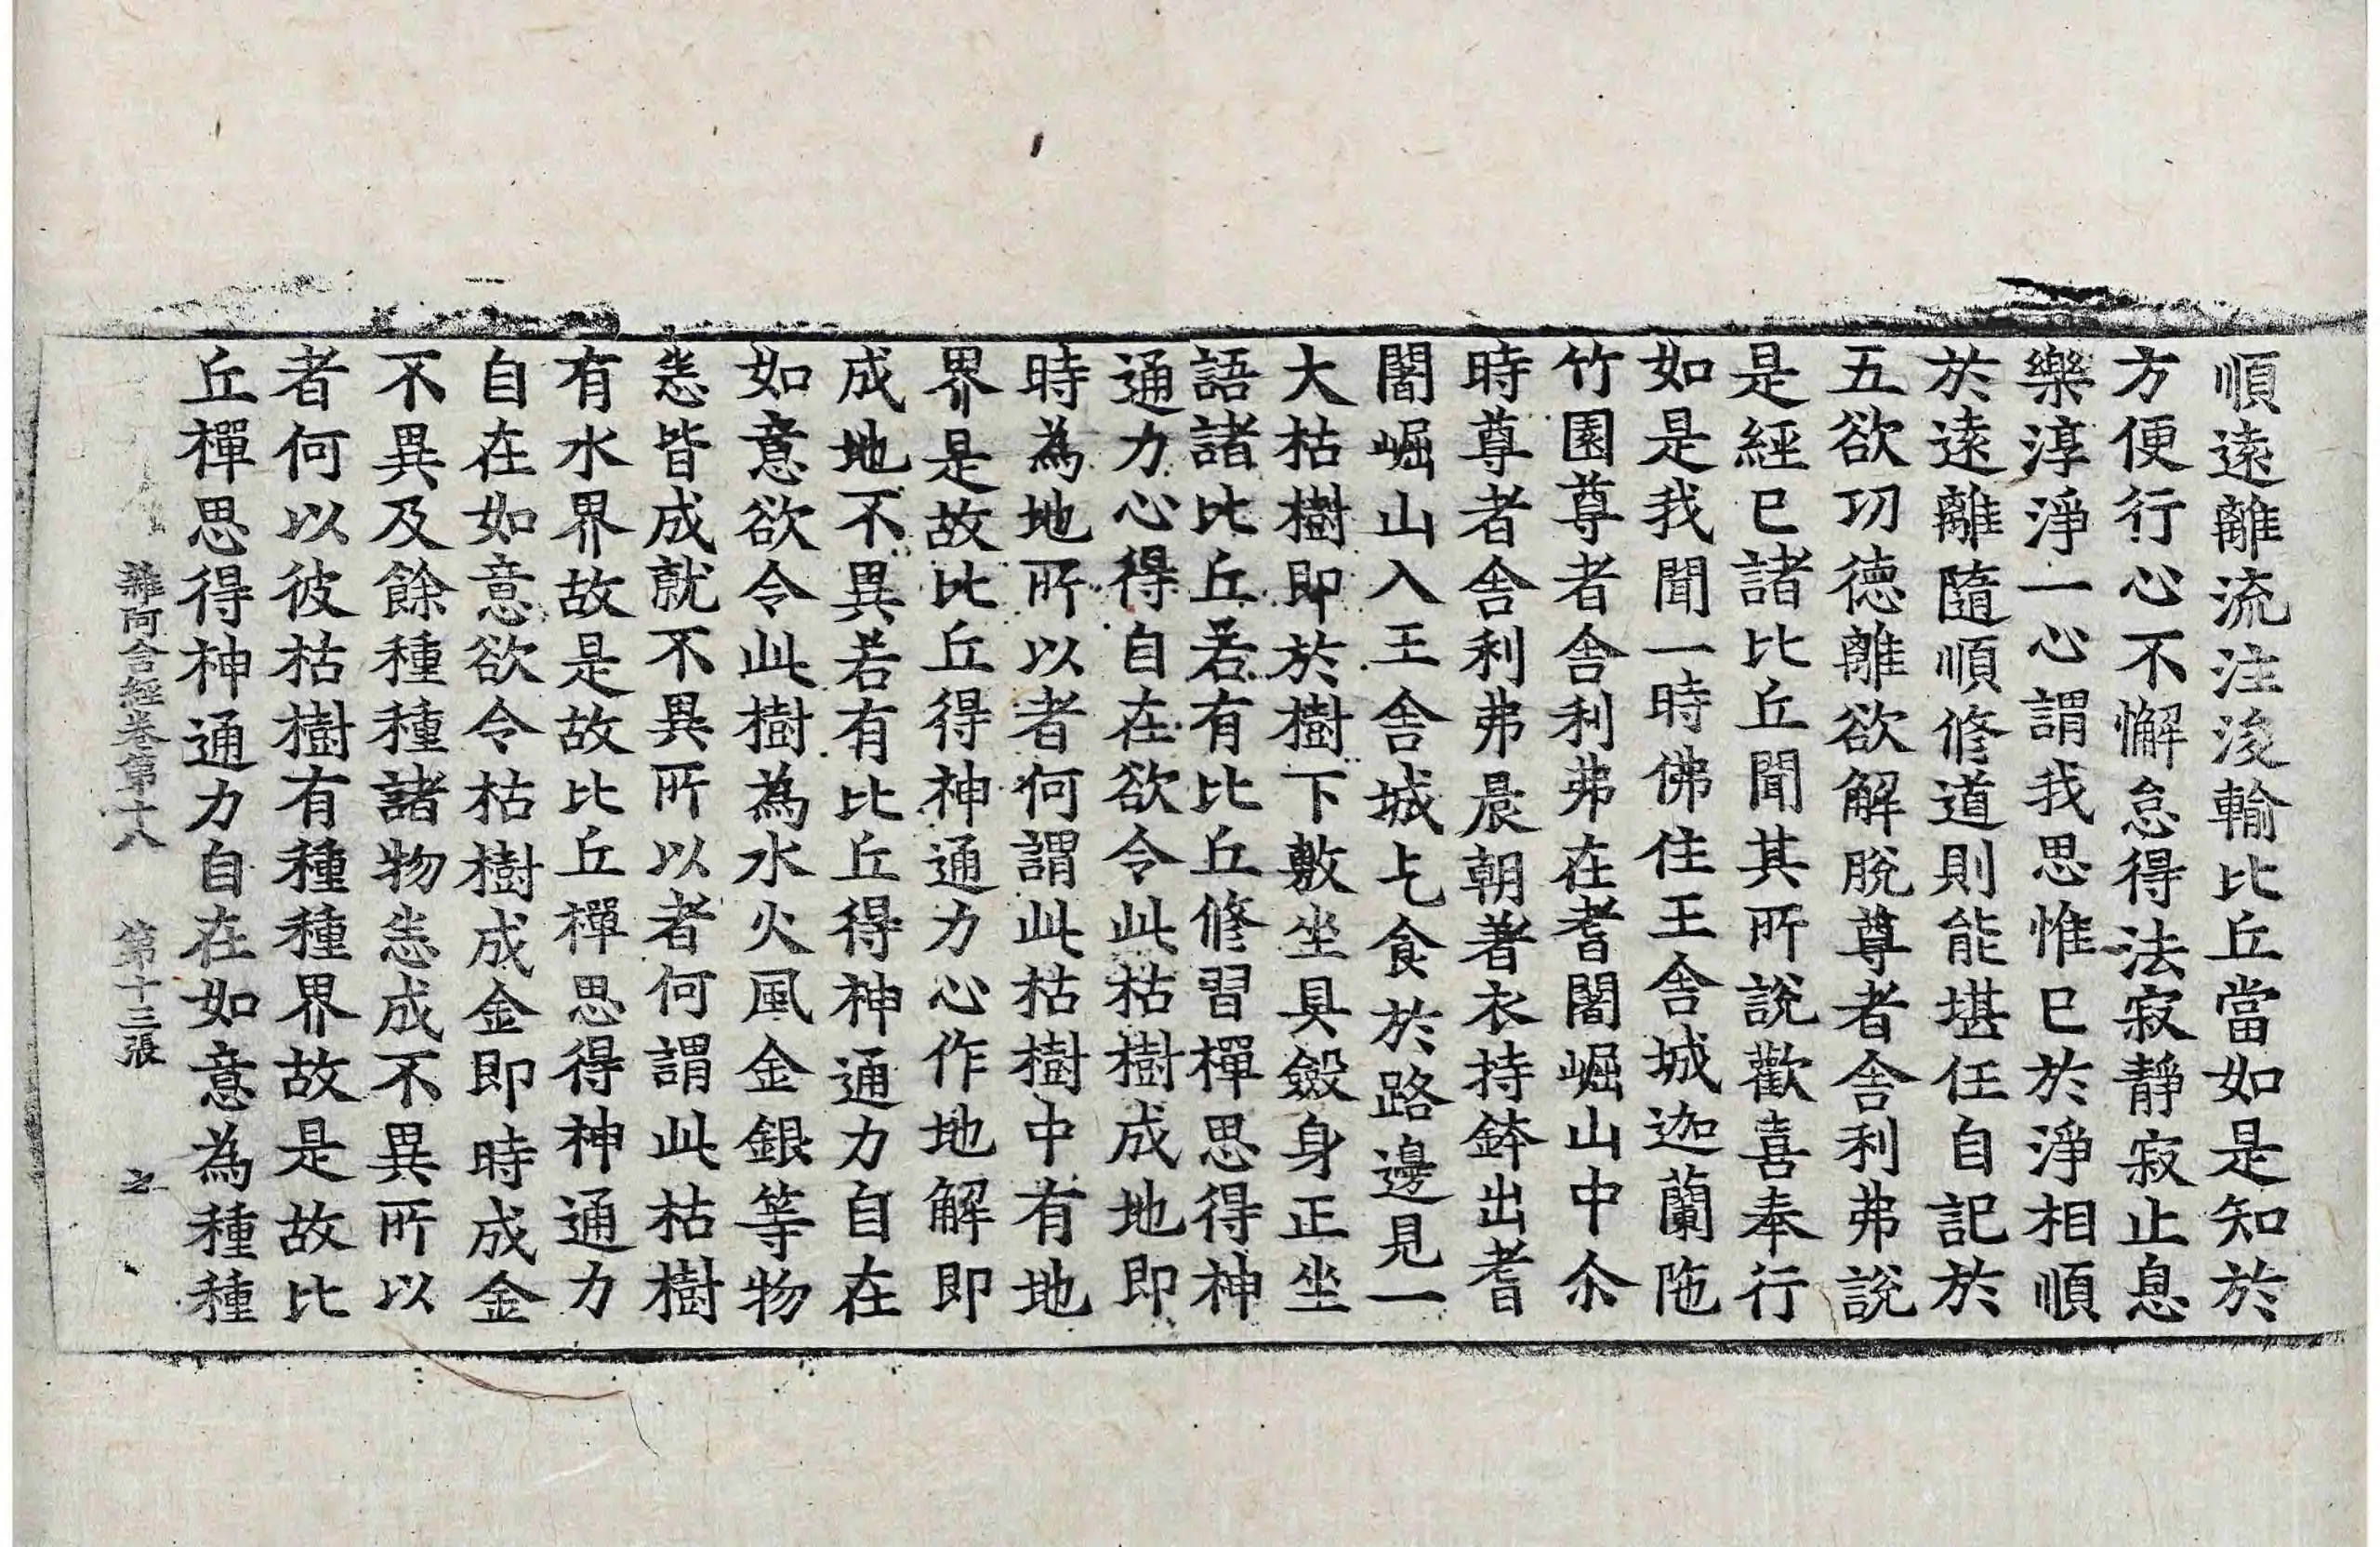 順遠離流注浚輸比丘當如是知於
方便行心不懈怠得法寂靜寂止息
樂淳淨一心謂我思惟已於淨相順
於遠離隨順修道則能堪任自記於
五欲功德離欲解脫尊者舍利弗說
是經已諸比丘聞其所說歡喜奉行
如是我聞一時佛住王舍城迦蘭陁
竹園尊者舍利弗在耆闍崛山中尒
時尊者舍利弗晨朝著衣持鉢出耆
闍崛山入王舍城乞食於路邊見一
大枯樹即於樹下敷坐具斂身正坐
語諸比丘若有比丘修習禪思得神
通力心得自在欲令此枯樹成地即
時為地所以者何謂此枯樹中有地
界是故比丘得神通力心作地解即
成地不異若有比丘得神通力自在
如意欲令此樹為水火風金銀等物
悉皆成就不異所以者何謂此枯樹
有水界故是故比丘禪思得神通力
自在如意欲令枯樹成金即時成金
不異及餘種種諸物悉成不異所以
者何以彼枯樹有種種界故是故比
丘禪思得神通力自在如意為種種
雜阿含經卷第十八 第十三張 之